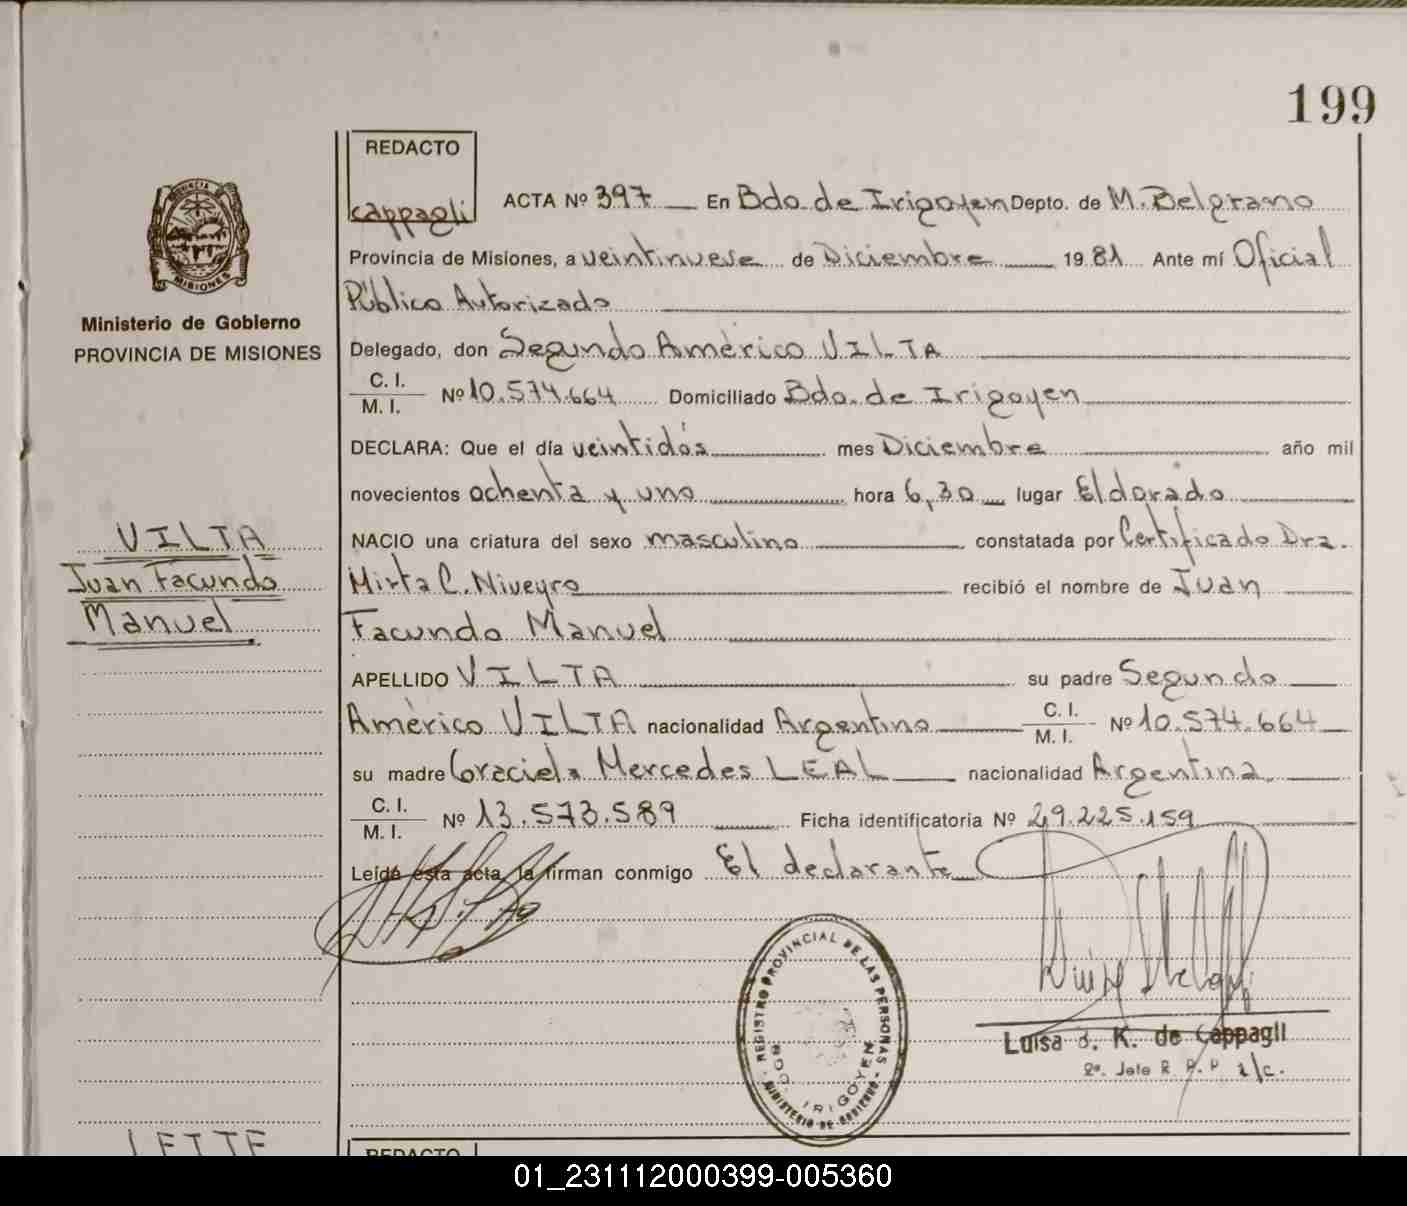 199
REDACTO
cappagli
PROVINCIA DE
MISIONES
Ministerio de Gobierno
PROVINCIA DE MISIONES
ACTA Nº 397 En Bdo. de Irigoyen Depto. de M. Belgrano
Provincia de Misiones, a veintinueve de Diciembre 1981 Ante mí Oficial
Público Autorizado
Delegado, don Segundo Américo VILTA
C. I.
M. I. Nº 10.574.664 Domiciliado Bdo. de Irigoyen
DECLARA: Que el día veintidós mes Diciembre año mil
novecientos ochenta y uno hora 6,30 lugar Eldorado
VILTA
Juan Facundo
Manuel
NACIO una criatura del sexo masculino constatada por Certificado Dra.
Mirta C. Niveyro recibió el nombre de Juan
Facundo Manuel
APELLIDO VILTA su padre Segundo
Américo VILTA nacionalidad Argentino C. I. M. I. Nº 10.574.664
su madre Graciela Mercedes LEAL nacionalidad Argentina
C. I.
M. I. Nº 13.573.589 Ficha identificatoria Nº 29.225.159
Leída esta acta, la firman conmigo El declarante
REGISTRO PROVINCIAL DE LAS PERSONAS
MINISTERIO DE GOBIERNO
BDO. IRIGOYEN
Luisa K. de Cappagli
2º. Jefe R. P. P a/c.
LETTE
REDACTO
01_231112000399-005360